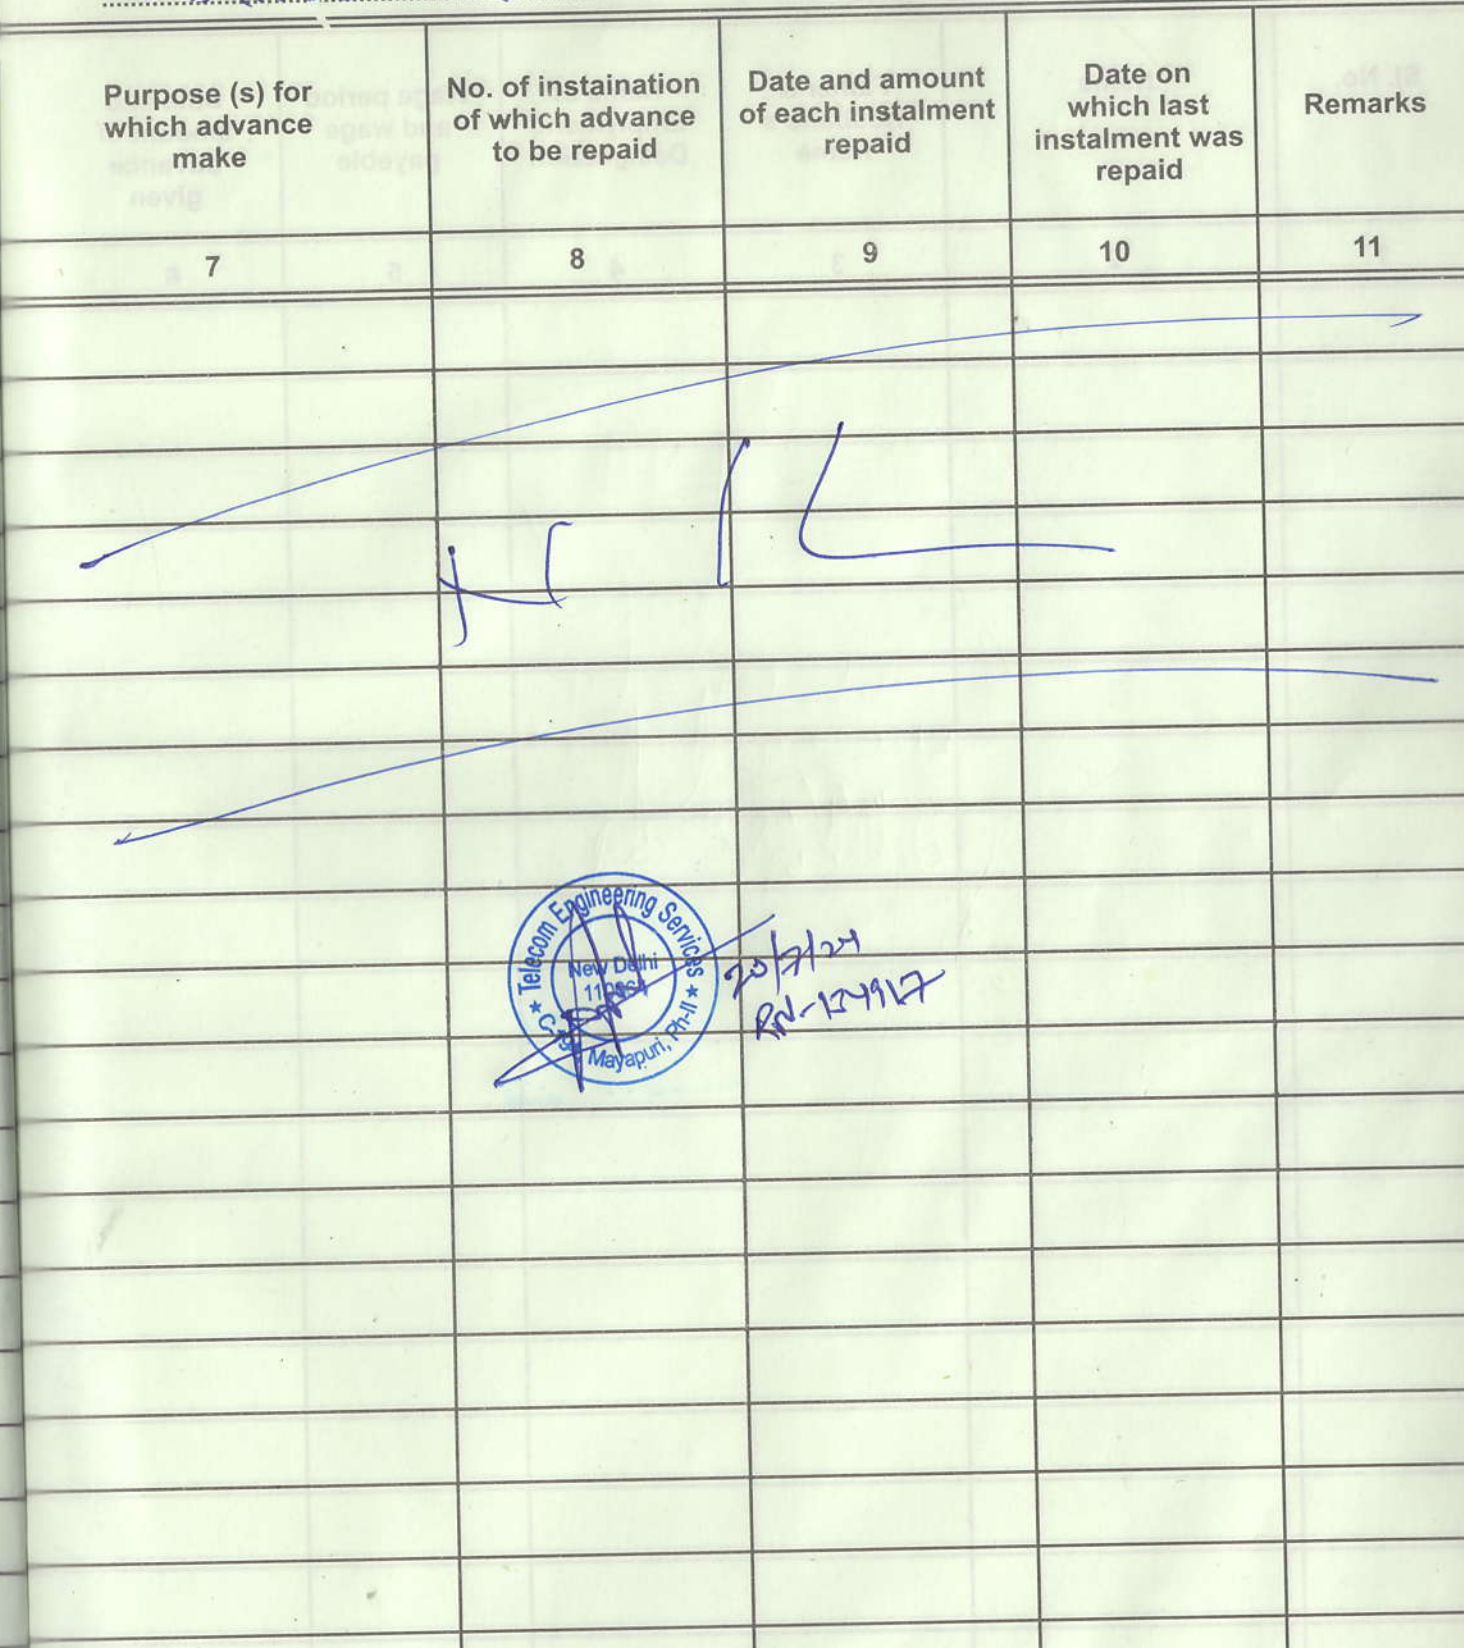 Purpose (s) for
which advance
make
No. of instaination
of which advance
to be repaid
Date and amount
of each instalment
repaid
Date on
which last
instalment was
repaid
Remarks
7
8
9
10
11
NIL
★ Telecom Engineering Services ★
New Delhi
Mayapuri, Ph-II
20/7/24